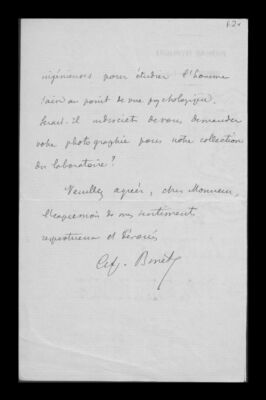 ingénieuses pour étudier l'homme
sain au point de vue psychologique.
Serait-il indiscret de vous demander
votre photographie pour notre collection
du laboratoire ?
Veuillez agréer, cher Monsieur,
l'expression de mes sentiments
respectueux et dévoués
Binet